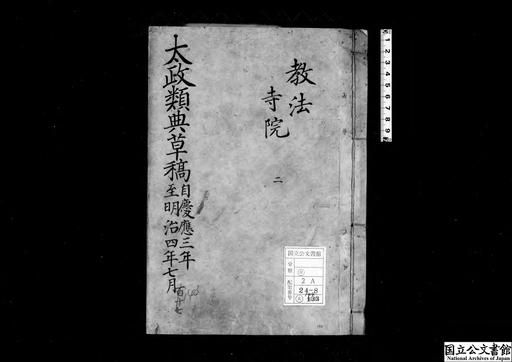 教法
寺院
二
太政類典草稿
自慶應三年
至明治四年七月
百廿七
国立公文書館
分類
2A
配架番号
24-8
133
1 2 3 4 5 6 7 8 9
国立公文書館
National Archives of Japan